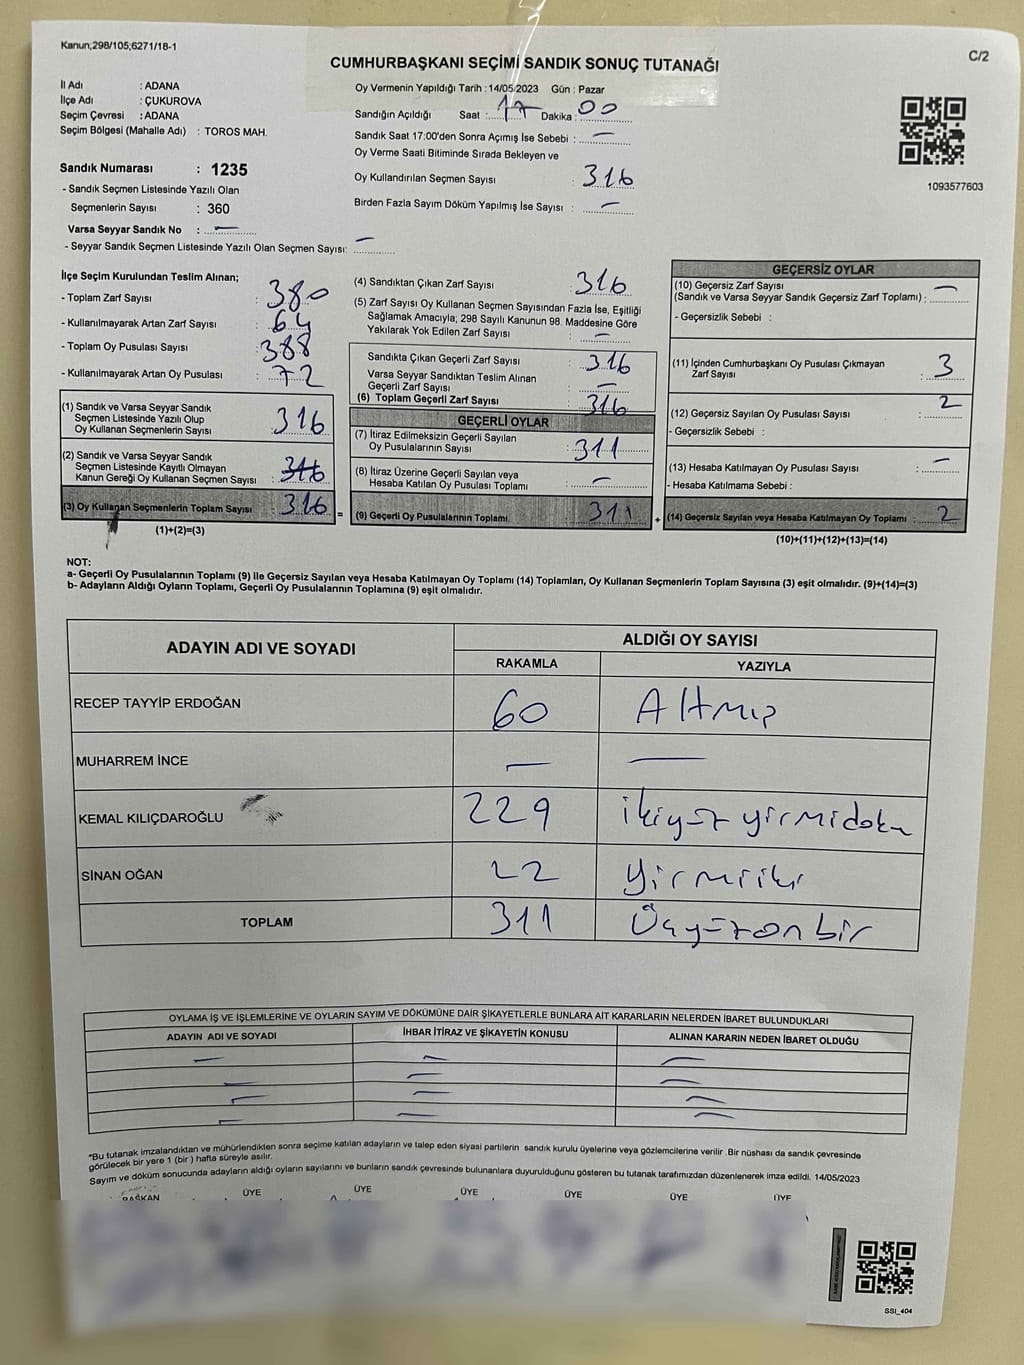 Kanun,298/105,6271/18-1
C/2
CUMHURBAŞKANI SEÇİMİ SANDIK SONUÇ TUTANAĞI
İl Adı : ADANA
İlçe Adı : ÇUKUROVA
Seçim Çevresi : ADANA
Seçim Bölgesi (Mahalle Adı) : TOROS MAH.
Sandık Numarası : 1235
- Sandık Seçmen Listesinde Yazılı Olan
Seçmenlerin Sayısı : 360
Varsa Seyyar Sandık No : —
- Seyyar Sandık Seçmen Listesinde Yazılı Olan Seçmen Sayısı: —
Oy Vermenin Yapıldığı Tarih : 14/05/2023 Gün : Pazar
Sandığın Açıldığı Saat : 17 Dakika : 00
Sandık Saat 17:00'den Sonra Açımış İse Sebebi : —
Oy Verme Saati Bitiminde Sırada Bekleyen ve
Oy Kullandırılan Seçmen Sayısı : 316
Birden Fazla Sayım Döküm Yapılmış İse Sayısı : —
1093577603
İlçe Seçim Kurulundan Teslim Alınan;
- Toplam Zarf Sayısı : 380
- Kullanılmayarak Artan Zarf Sayısı : 64
- Toplam Oy Pusulası Sayısı : 388
- Kullanılmayarak Artan Oy Pusulası : 72
(1) Sandık ve Varsa Seyyar Sandık
Seçmen Listesinde Yazılı Olup
Oy Kullanan Seçmenlerin Sayısı : 316
(2) Sandık ve Varsa Seyyar Sandık
Seçmen Listesinde Kayıtlı Olmayan
Kanun Gereği Oy Kullanan Seçmen Sayısı : 316
(3) Oy Kullanan Seçmenlerin Toplam Sayısı : 316
(1)+(2)=(3)
(4) Sandıktan Çıkan Zarf Sayısı : 316
(5) Zarf Sayısı Oy Kullanan Seçmen Sayısından Fazla İse, Eşitliği
Sağlamak Amacıyla; 298 Sayılı Kanunun 98. Maddesine Göre
Yakılarak Yok Edilen Zarf Sayısı : —
Sandıkta Çıkan Geçerli Zarf Sayısı : 316
Varsa Seyyar Sandıktan Teslim Alınan
Geçerli Zarf Sayısı : —
(6) Toplam Geçerli Zarf Sayısı : 316
GEÇERLİ OYLAR
(7) İtiraz Edilmeksizin Geçerli Sayılan
Oy Pusulalarının Sayısı : 311
(8) İtiraz Üzerine Geçerli Sayılan veya
Hesaba Katılan Oy Pusulası Toplamı : —
= (9) Geçerli Oy Pusulalarının Toplamı : 311
GEÇERSİZ OYLAR
(10) Geçersiz Zarf Sayısı —
(Sandık ve Varsa Seyyar Sandık Geçersiz Zarf Toplamı) :
- Geçersizliğ Sebebi :
(11) İçinden Cumhurbaşkanı Oy Pusulası Çıkmayan
Zarf Sayısı : 3
(12) Geçersiz Sayılan Oy Pusulası Sayısı : 2
- Geçersizlik Sebebi :
(13) Hesaba Katılmayan Oy Pusulası Sayısı : —
- Hesaba Katılmama Sebebi :
+ (14) Geçersiz Sayılan veya Hesaba Katılmayan Oy Toplamı : 2
(10)+(11)+(12)+(13)=(14)
NOT:
a- Geçerli Oy Pusulalarının Toplamı (9) ile Geçersiz Sayılan veya Hesaba Katılmayan Oy Toplamı (14) Toplamları, Oy Kullanan Seçmenlerin Toplam Sayısına (3) eşit olmalıdır. (9)+(14)=(3)
b- Adayların Aldığı Oyların Toplamı, Geçerli Oy Pusulalarının Toplamına (9) eşit olmalıdır.
ADAYIN ADI VE SOYADI ALDIĞI OY SAYISI
RAKAMLA YAZIYLA
RECEP TAYYİP ERDOĞAN 60 Altmış
MUHARREM İNCE — —
KEMAL KILIÇDAROĞLU 229 ikiyüz yirmidoku
SİNAN OĞAN 22 yirmiiki
TOPLAM 311 Üçyüzonbir
OYLAMA İŞ VE İŞLEMLERİNE VE OYLARIN SAYIM VE DÖKÜMÜNE DAİR ŞİKAYETLERLE BUNLARA AİT KARARLARIN NELERDEN İBARET BULUNDUKLARI
ADAYIN ADI VE SOYADI İHBAR İTİRAZ VE ŞİKAYETİN KONUSU ALINAN KARARIN NEDEN İBARET OLDUĞU
— — —
— — —
— — —
— — —
*Bu tutanak imzalandıktan ve mühürlendikten sonra seçime katılan adayların ve talep eden siyasi partilerin sandık kurulu üyelerine veya gözlemcilerine verilir .Bir nüshası da sandık çevresinde
görülecek bir yere 1 (bir ) hafta süreyle asılır.
Sayım ve döküm sonucunda adayların aldığı oyların sayılarını ve bunların sandık çevresinde bulunanlara duyurulduğunu gösteren bu tutanak tarafımızdan düzenlenerek imza edildi. 14/05/2023
BAŞKAN ÜYE ÜYE ÜYE ÜYE ÜYE ÜYE
SSI_404